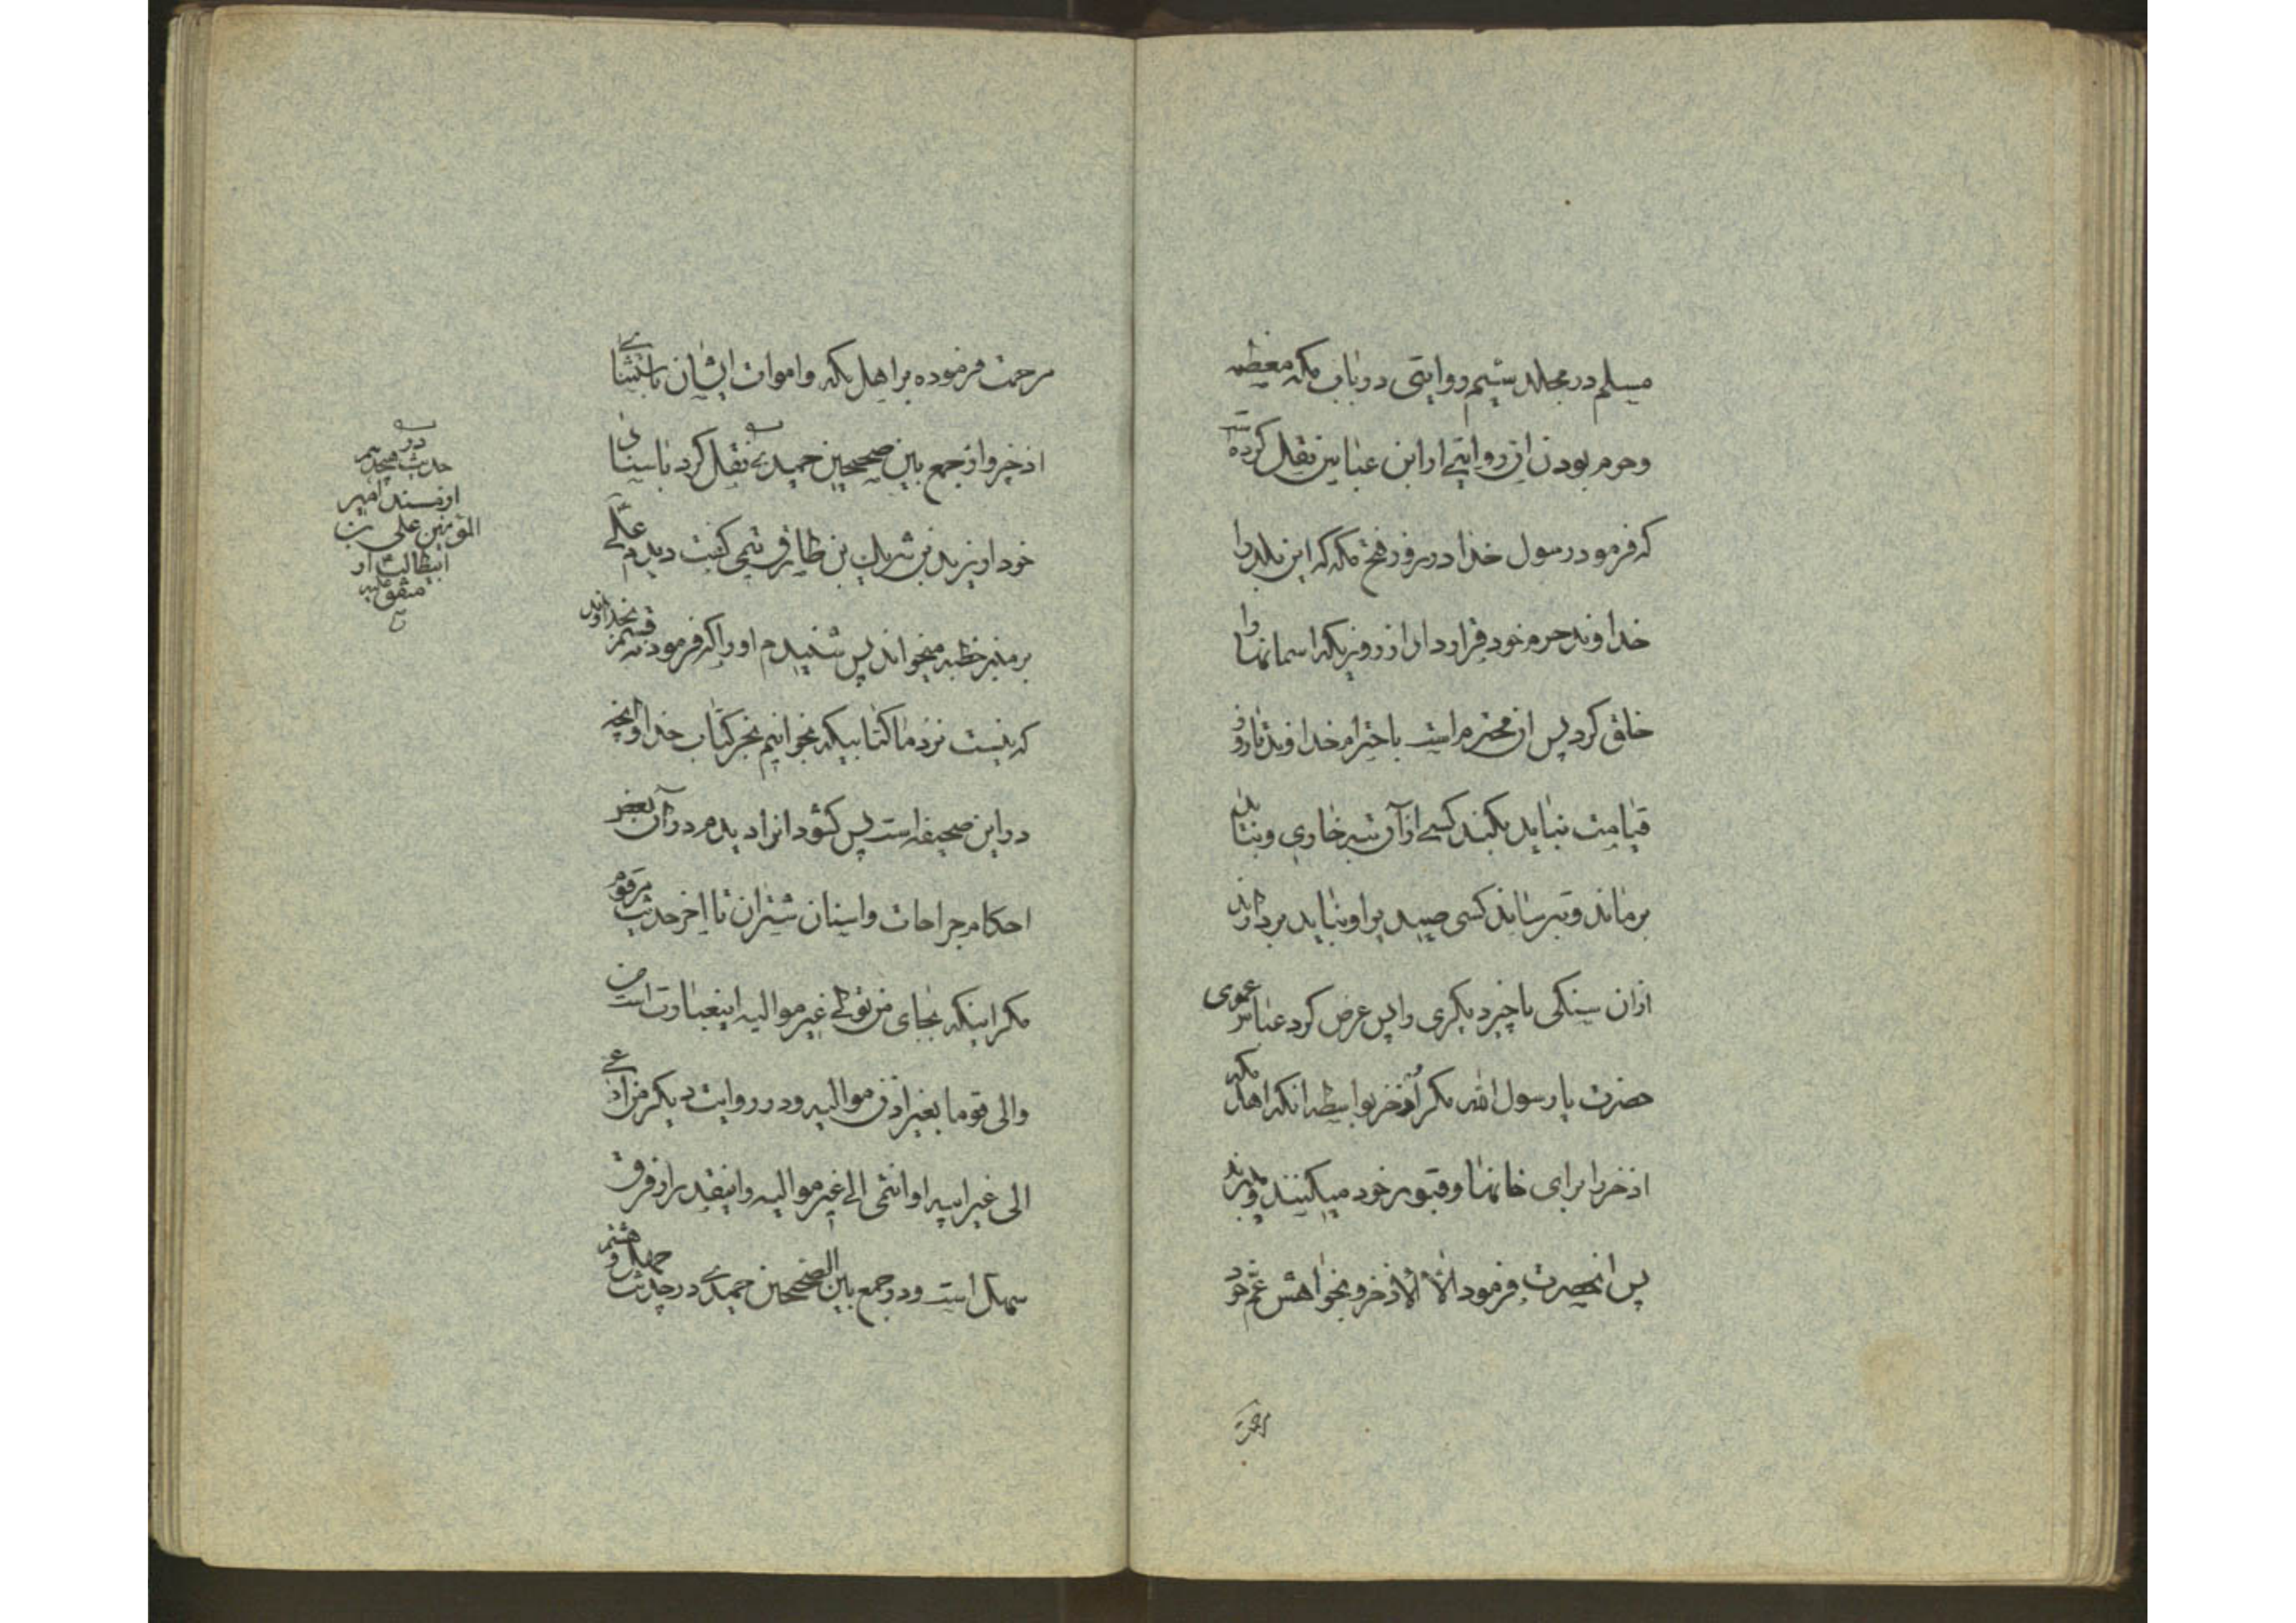 مسلم در مجلد سیم روایتی در باب مکه معظمه
و حرم بودن ان روایتی از ابن عباس نقل کرده
که فرمود رسول خدا در روز فتح مکه که این بلد را
خداوند حرم خود قرار داد از روزیکه اسمانها را
خلق کرد پس ان محترم است باحترام خداوند تا روز
قیامت نباید بکند کسی از آن شجر خاری و نباید
برماند و بترساند کسی صید برا و نباید بردارند
ازان سنکی یا چیز دیکری را پس عرض کرد عباس عموی
حضرت یا رسول الله مکر اذخر بواسطه انکه اهل مکه
اذخر را برای خانها و قبور خود میکنند و میبرند
پس انحضرت فرمود الا الاذخر و بخواهش عم خود
مرحمت فرموده بر اهل مکه و اموات ایشان باستثنای
اذخر و از جمع بین صحیحین حمیدی نقل کرد باسناد
خود از یزید بن شریك بن طارق تیمی کفت دیدم علی
بر منبر خطبه میخواند پس شنیدم او را که فرمود نه قسم بخداوند
که نیست نزد ما کتابیکه بخوانیم بجز کتاب خدا و انچه
در این صحیفه است پس کشود انرا دیدم در آن بعض
احکام جراحات و اسنان شتران تا اخر حدیث مرقوم
مکر اینکه بجای من تولی غیر موالیه اینعبارت است من
والی قوما بغیر اذن موالیه و در روایت دیکر من ادعی
الی غیر ابیه او انتمی الی غیر موالیه و اینقدر از فرق
سهل است و در جمع بین الصحیحین حمیدی در حدیث چهل و هشتم
در
حدیث هیجدهم
از مسند امیر
المؤمنین علی بن
ابیطالب از
متفق علیه